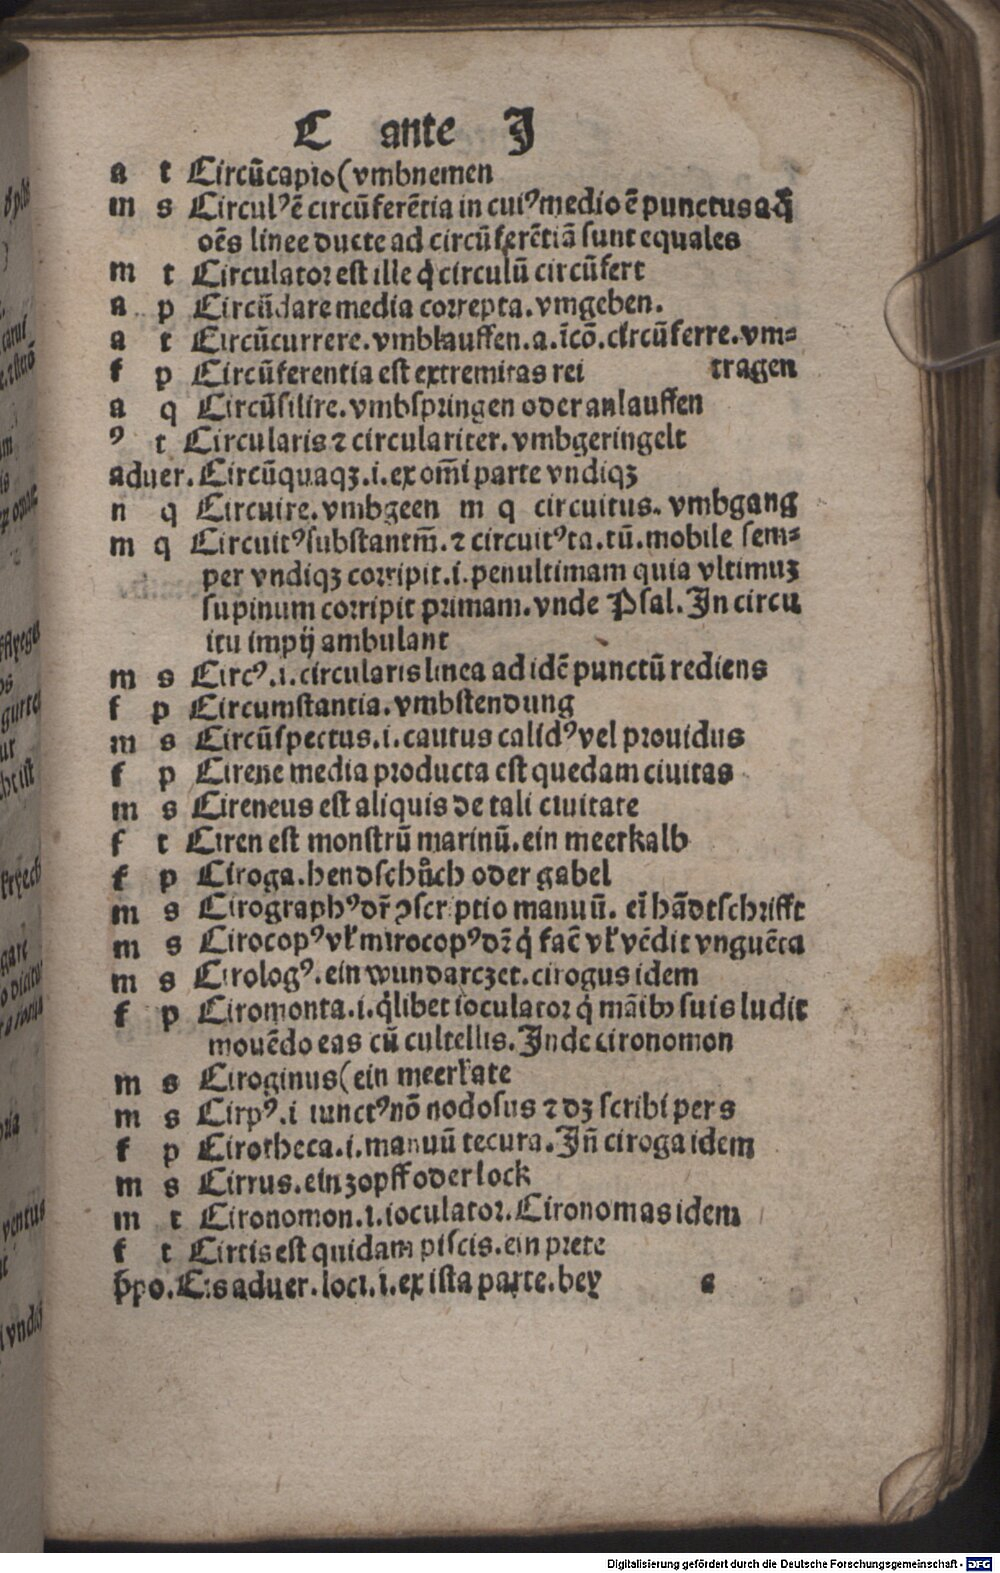 C ante J
a t Circūcapio (vmbnemen
m s Circulꝰ ē circūferētia in cuiꝰ medio ē punctus a q̄
oēs linee ducte ad circūferētiā sunt equales
m t Circulator est ille q̇ circulū circūfert
a p Circūdare media correpta. vmgeben.
a t Circūcurrere. vmblauffen. a. īcō. circūferre. vm⸗
f p Circūferentia est extremitas rei tragen
a q Circūsilire. vmbspringen oder anlauffen
ꝰ t Circularis ⁊ circulariter. vmbgeringelt
aduer. Circūquaqꝫ. i. ex om̄i parte vndiqꝫ
n q Circuire. vmbgeen m q circuitus. vmbgang
m q Circuitꝰ substantm̄. ⁊ circuitꝰ ta. tū. mobile sem⸗
per vndiqꝫ corripit. i. penultimam quia vltimuꝫ
supinum corripit primam. vnde Psal. In circu
itu impij ambulant
m s Circꝰ. i. circularis linea ad idē punctū rediens
f p Circumstantia. vmbstendung
m s Circūspectus. i. cautus calidꝰ vel prouidus
f p Cirene media producta est quedam ciuitas
m s Cireneus est aliquis de tali ciuitate
f t Ciren est monstrū marinū. ein meerkalb
f p Ciroga. hendschůch oder gabel
m s Cirographꝰ dr̄ ꝯscriptio manuū. eī hādtschrifft
m s Cirocopꝰ vł mirocopꝰ dr̄ q̇ facē vł vēdit vnguēta
m s Cirologꝰ. ein wundarczet. cirogus idem
f p Ciromonta. i. q̇libet ioculator q̇ māibꝫ suis ludit
mouēdo eas cū cultellis. Inde cironomon
m s Ciroginus (ein meerkate
m s Cirpꝰ. i iunctꝰ nō nodosus ⁊ dꝫ scribi per s
f p Cirotheca. i. manuū tecura. Iñ ciroga idem
m s Cirrus. ein zopff oder lock
m t Cironomon. i. ioculator. Cironomas idem
f t Cirtis est quidam piscis. ein prete
p̄po. Cis aduer. loci. i. ex ista parte. bey e
Digitalisierung gefördert durch die Deutsche Forschungsgemeinschaft - DFG